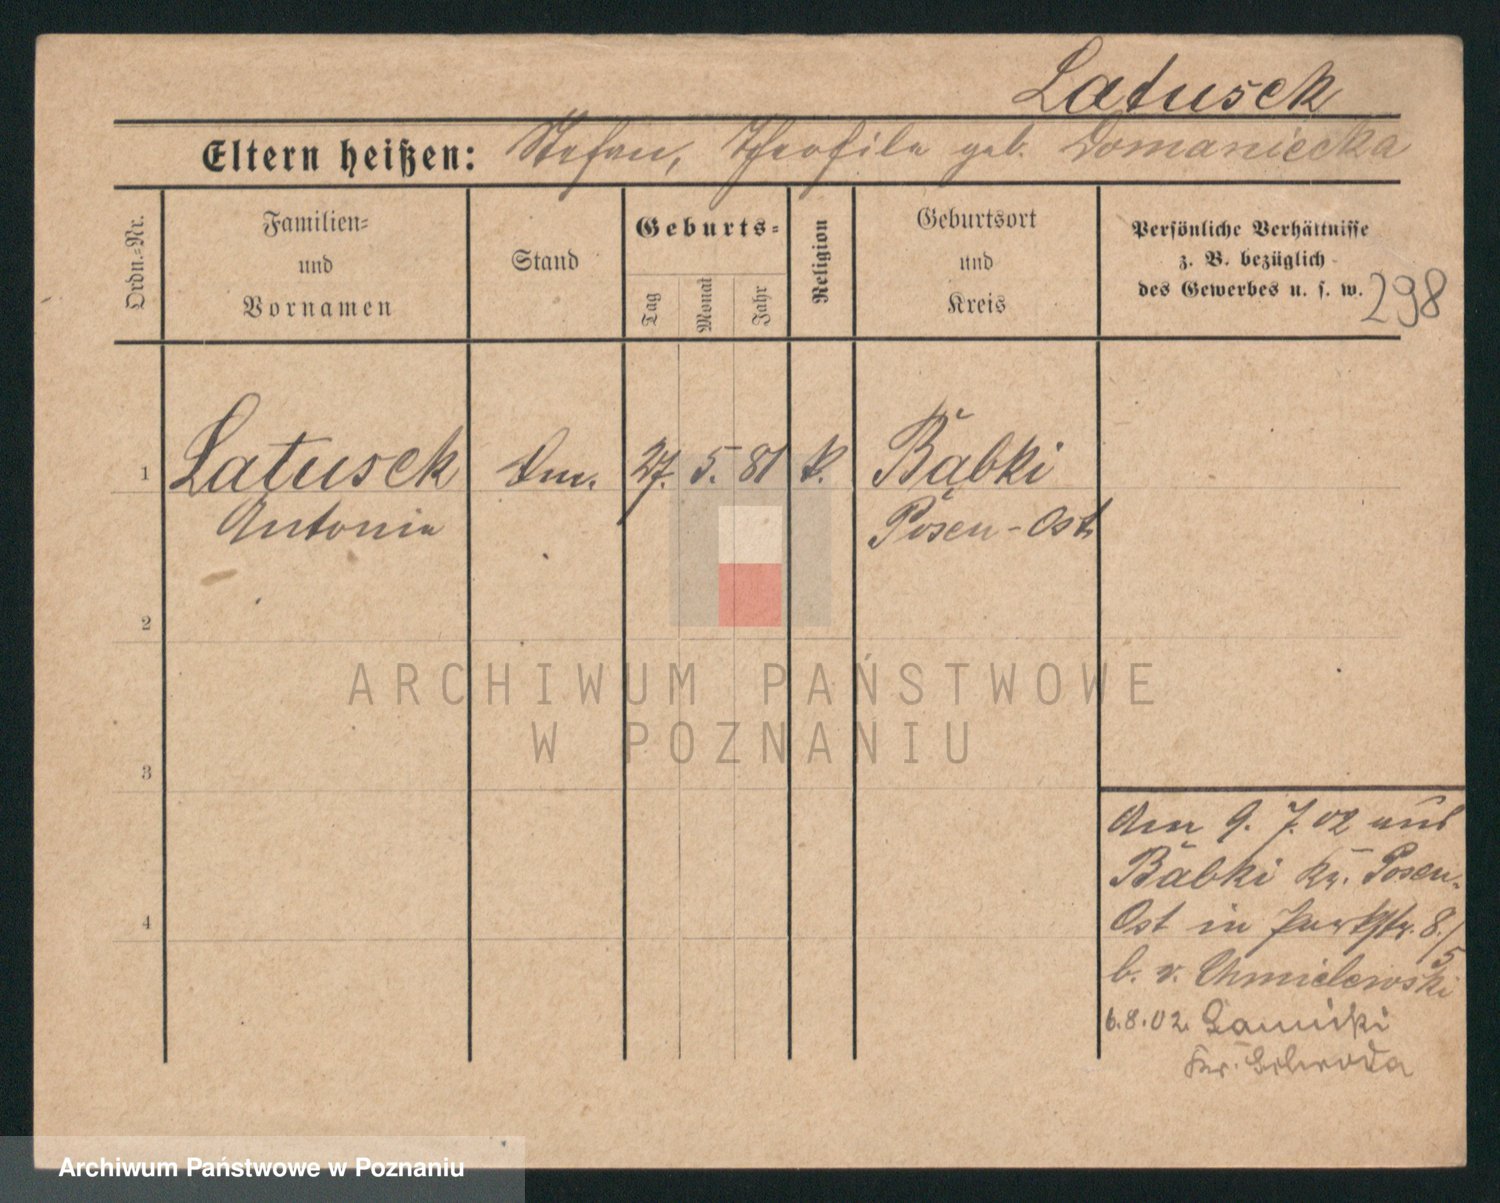 Latusek
Eltern heißen: Stefan, Theofila geb. Domaniecka
Ordn.-Nr.
Familien-
und
Vornamen
Stand
Geburts-
Tag
Monat
Jahr
Religion
Geburtsort
und
Kreis
Persönliche Verhältnisse
z. B. bezüglich
des Gewerbes u. s. w.
298
1 Latusek 27. 5. 81 k. Babki
Antonie Posen-Ost
2
3
4
Am 9. 7. 02 aus
Babki Kr. Posen-
Ost in Parkstr. 8./5
b. v. Chmielewski
6.8.02.
Kr. Schroda
ARCHIWUM PAŃSTWOWE
W POZNANIU
Archiwum Państwowe w Poznaniu